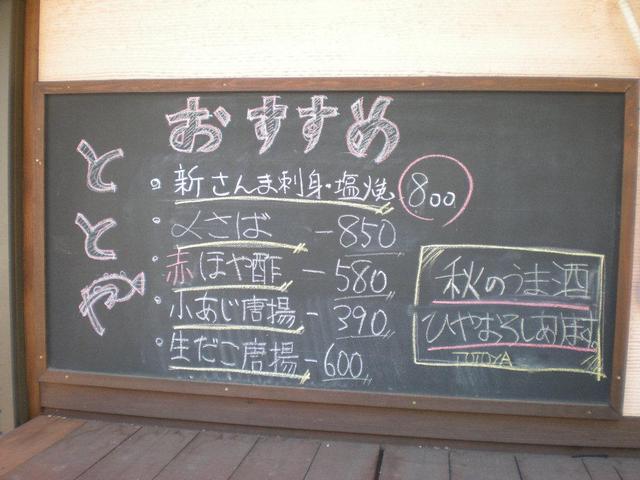 おすすめ
ととや
・新さんま刺身・塩焼 800
・〆さば -850
・赤ほや酢 -580
・小あじ唐揚 -390
・生だこ唐揚 -600
秋のうま酒
ひやおろしあります
TOTOYA